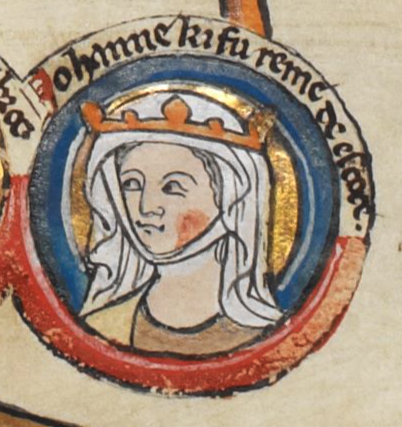 Johanne ki fu reine de escoce.